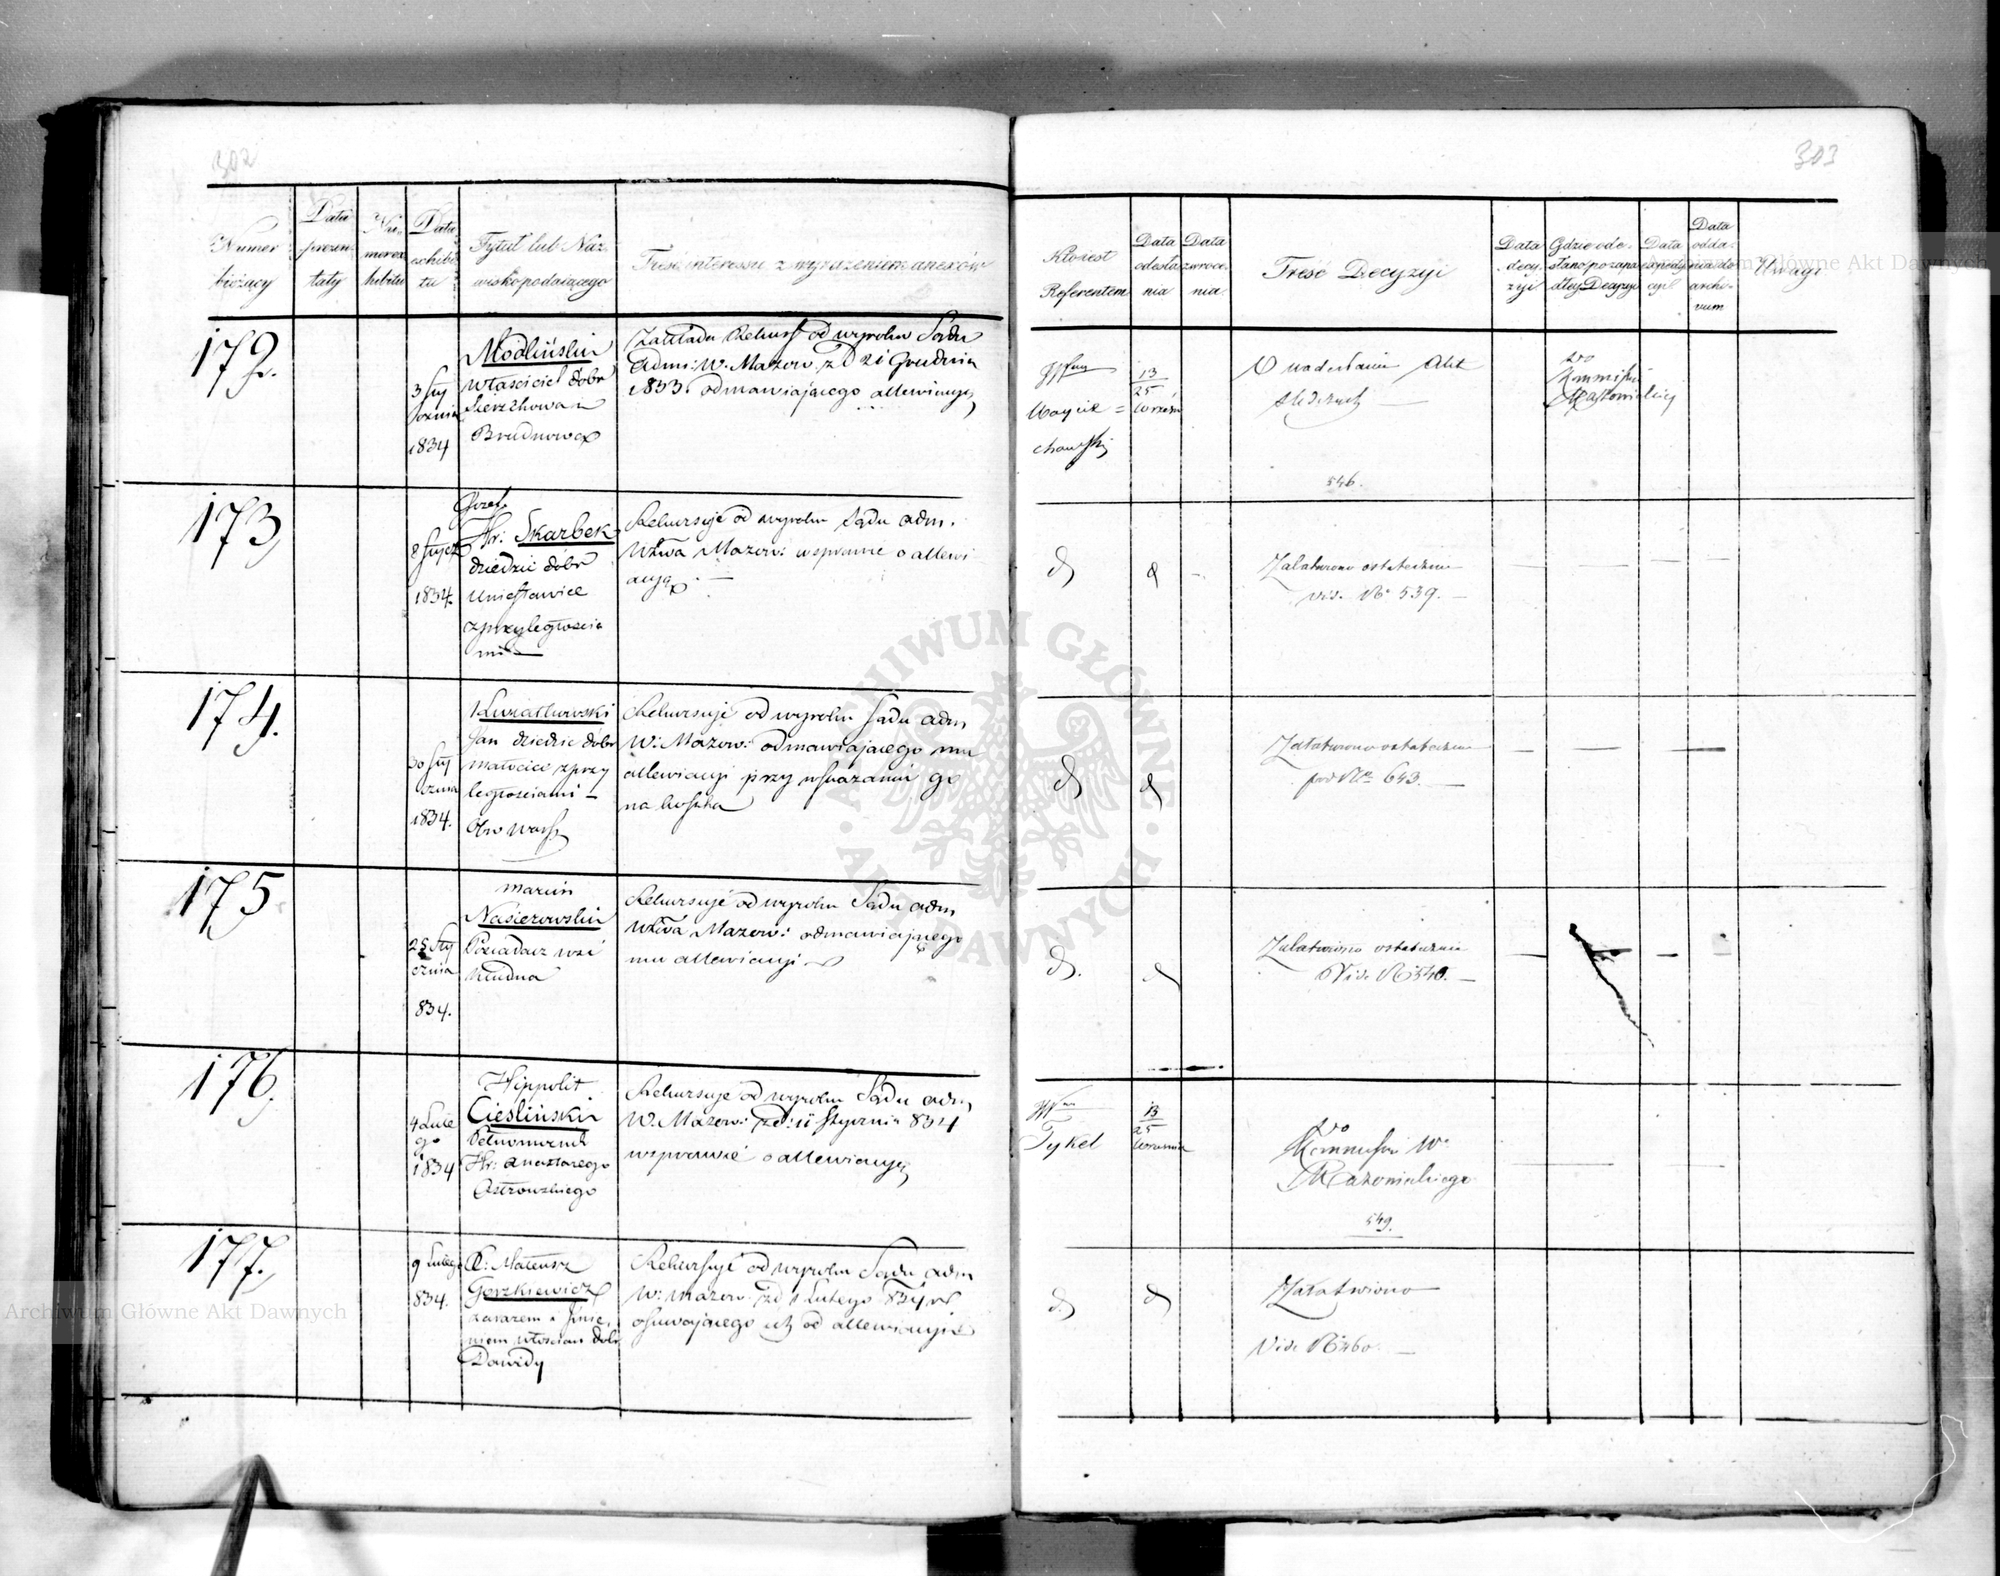 302
Numer
bieżący
Data
prezen-
taty
Nu-
mer ex-
hibitu
Data
exhibi-
tu
Tytuł lub Naz-
wisko podającego
Treść interessu z wyrażeniem anexów
172.
3 Sty
cznia
1834
Modliński
właściciel dóbr
Brudnowa
Zakłada Rekurs od wyroku Sądu
Adm: W. Mazow. z D 21 Grudnia
1833. odmawiającego allewiacyi
173
1834.
Józef
Hr: Skarbek
dziedzic dóbr
z przyległościa
mi
Rekursuje od wyroku Sądu adm.
Wztwa Mazow: w sprawie o allewi
acyą
174.
30 Sty
cznia
1834.
Kwiatkowski
Jan dziedzic dóbr
z przy
ległościami
Rekursuje od wyroku Sądu adm
W: Mazow: odmawiającego mu
allewiacyi przy wskazaniu go
na koszta
175
25 Sty
cznia
834.
Marcin
Nasierowski
Posiadacz wsi
Rekursuje od wyroku Sądu adm
Wztwa Mazow: odmawiającego
mu allewiacyi
176.
4 Lute
go
1834
Hippolit
Ciesliński
Pełnomocnik
Hr: Anastazego
Ostrowskiego
Rekursuje od wyroku Sądu adm,
W. Mazow: z d: 11 Stycznia 834
w sprawie o allewiacyą
177.
9 Lutego
834.
X: Mateusz
Gorzkiewicz
zarazem z Imie,
niem włościan dóbr
Dawidy
Rekursuje od wyroku Sądu adm
W: Mazow: z d 1 Lutego 834 r
usuwającego ich od allewiacyi
303
Któż jest
Referentem
Data
odesła
nia
Data
zwróce
nia.
Treść Decyzyi
Data
decy.
zyi
Gdzie ode-
słano po zapa-
dłej Decyzyi
Data
expedy
cyi
Data
odda-
nia do
archi-
wum
Uwagi
Woycie=
chowski
13
25
Wrześn
O nadesłanie Akt
śledczych
do
Kommissyi
Mazowieckiej
546.
Załatwiono ostatecznie
vid. No 539.
Załatwiono ostatecznie
pod No 643.
Załatwiono ostatecznie
Vid. No 540.
Tykel
13
25
Września
Do
Kommissyi W.
Mazowieckiego
549.
Załatwiono
Vid. No 460.
ARCHIWUM GŁÓWNE AKT DAWNYCH
Archiwum Główne Akt Dawnych
Archiwum Główne Akt Dawnych